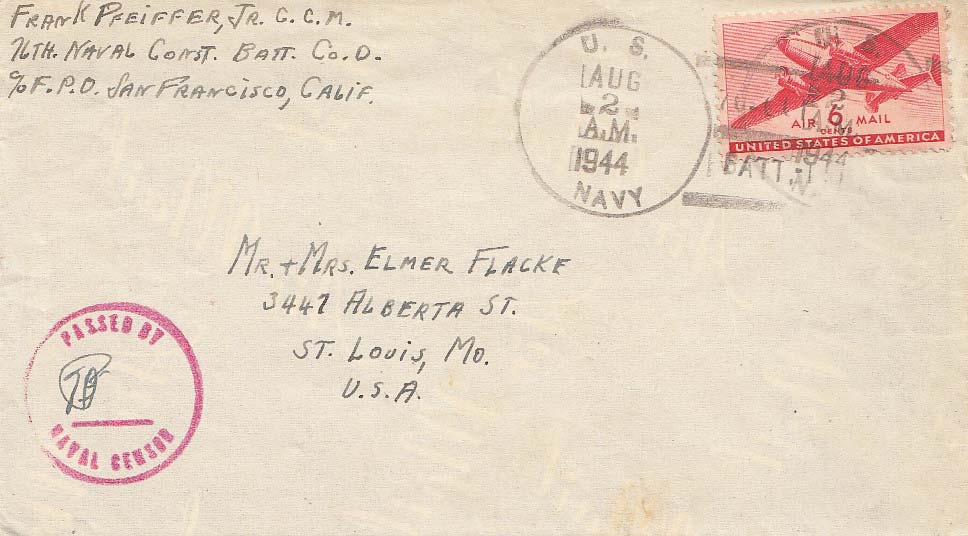 FRANK PFEIFFER, JR. C.C.M.
76TH. NAVAL CONST. BATT. CO. D.
℅ F.P.O. SAN FRANCISCO, CALIF.
U. S.
AUG
2
A.M.
1944
NAVY
AUG
2
A.M.
1944
BATT.
AIR 6 MAIL
CENTS
UNITED STATES OF AMERICA
MR. + MRS. ELMER FLACKE
3447 ALBERTA ST.
ST. LOUIS, MO.
U.S.A.
PASSED BY
NAVAL CENSOR